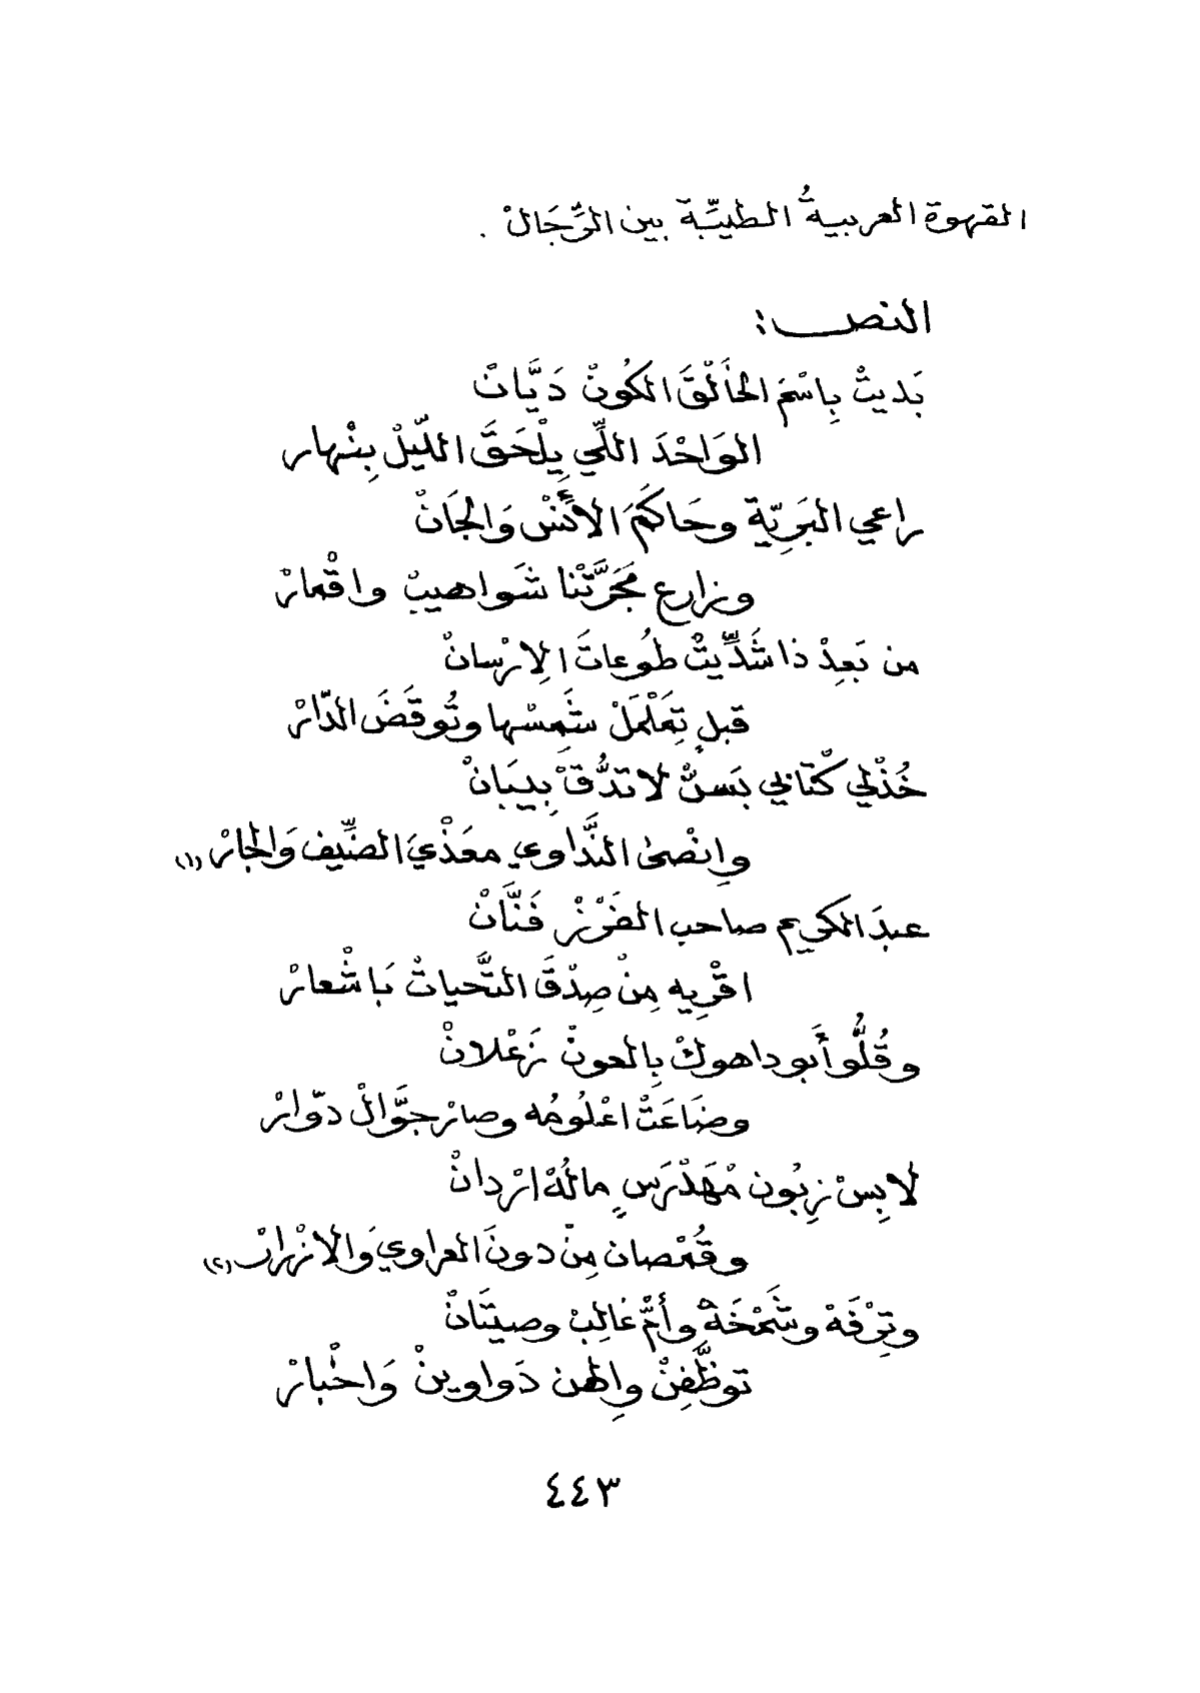 القهوة العربيةُ الطيِّبة بين الرِّجَالْ .
النص :
بَديتْ بِاسْمَ الخَالْقَ الكُونْ دَيَّانْ
الوَاحْدَ اللِّي يِلْحَقَ اللّيلْ بِنْهار
راعي البَرِيّة وحَاكَمَ الأَنَسْ وَالجَانْ
وزارع مَجَرَّتْنا شَواهيبْ واقْمارْ
من بَعِدْ ذا شَدِّيتْ طُوعاتَ الِارْسانْ
قبلِ تِعَلْمَلْ شَمِسْها وتُوقَضَ الدّارْ
خُذْلي كْتابي بَسنّْ لا تدُّقَ بِيبَانْ
وِانْصىٰ النَّداوي معَذْيَ الضِّيف وَالجارْ (١)
عبدَ الكريم صاحب الفَرْزْ فَنَّانْ
اقْرِيه مِنْ صِدْقَ التَّحياتْ بَاشْعارْ
وقُلُّو أَبو داهوكْ بِالعونْ زَعْلانْ
وضَاعَتْ اعْلُومُه وصارْ جوَّالْ دوّارْ
لابِسْ زِبُون مْهَدْرَسٍ مالُهْ ارْدانْ
وقُمْصان مِنْ دونَ العراوي وَالازْرارْ (٢)
وتِرْفَهْ وشَمْخَهْ وأمّْ غالِبْ وصيتَانْ
توظَّفِنْ وِالهن دَواوينْ وَاخْبارْ
٤٤٣